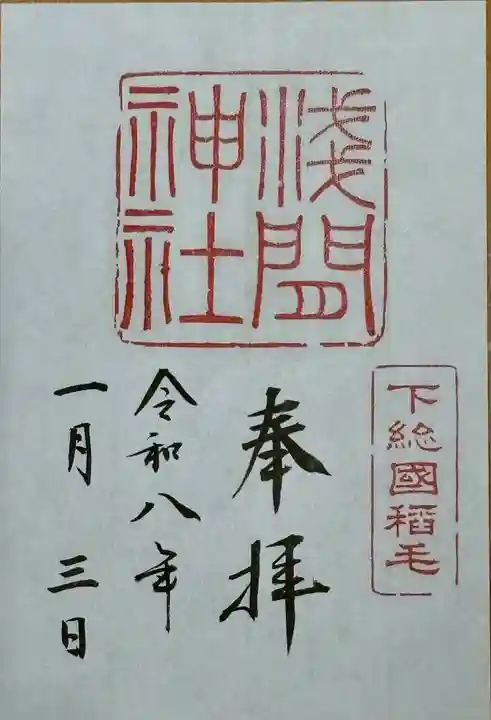 淺間
神社
下総國稲毛
奉拝
令和八年
一月三日